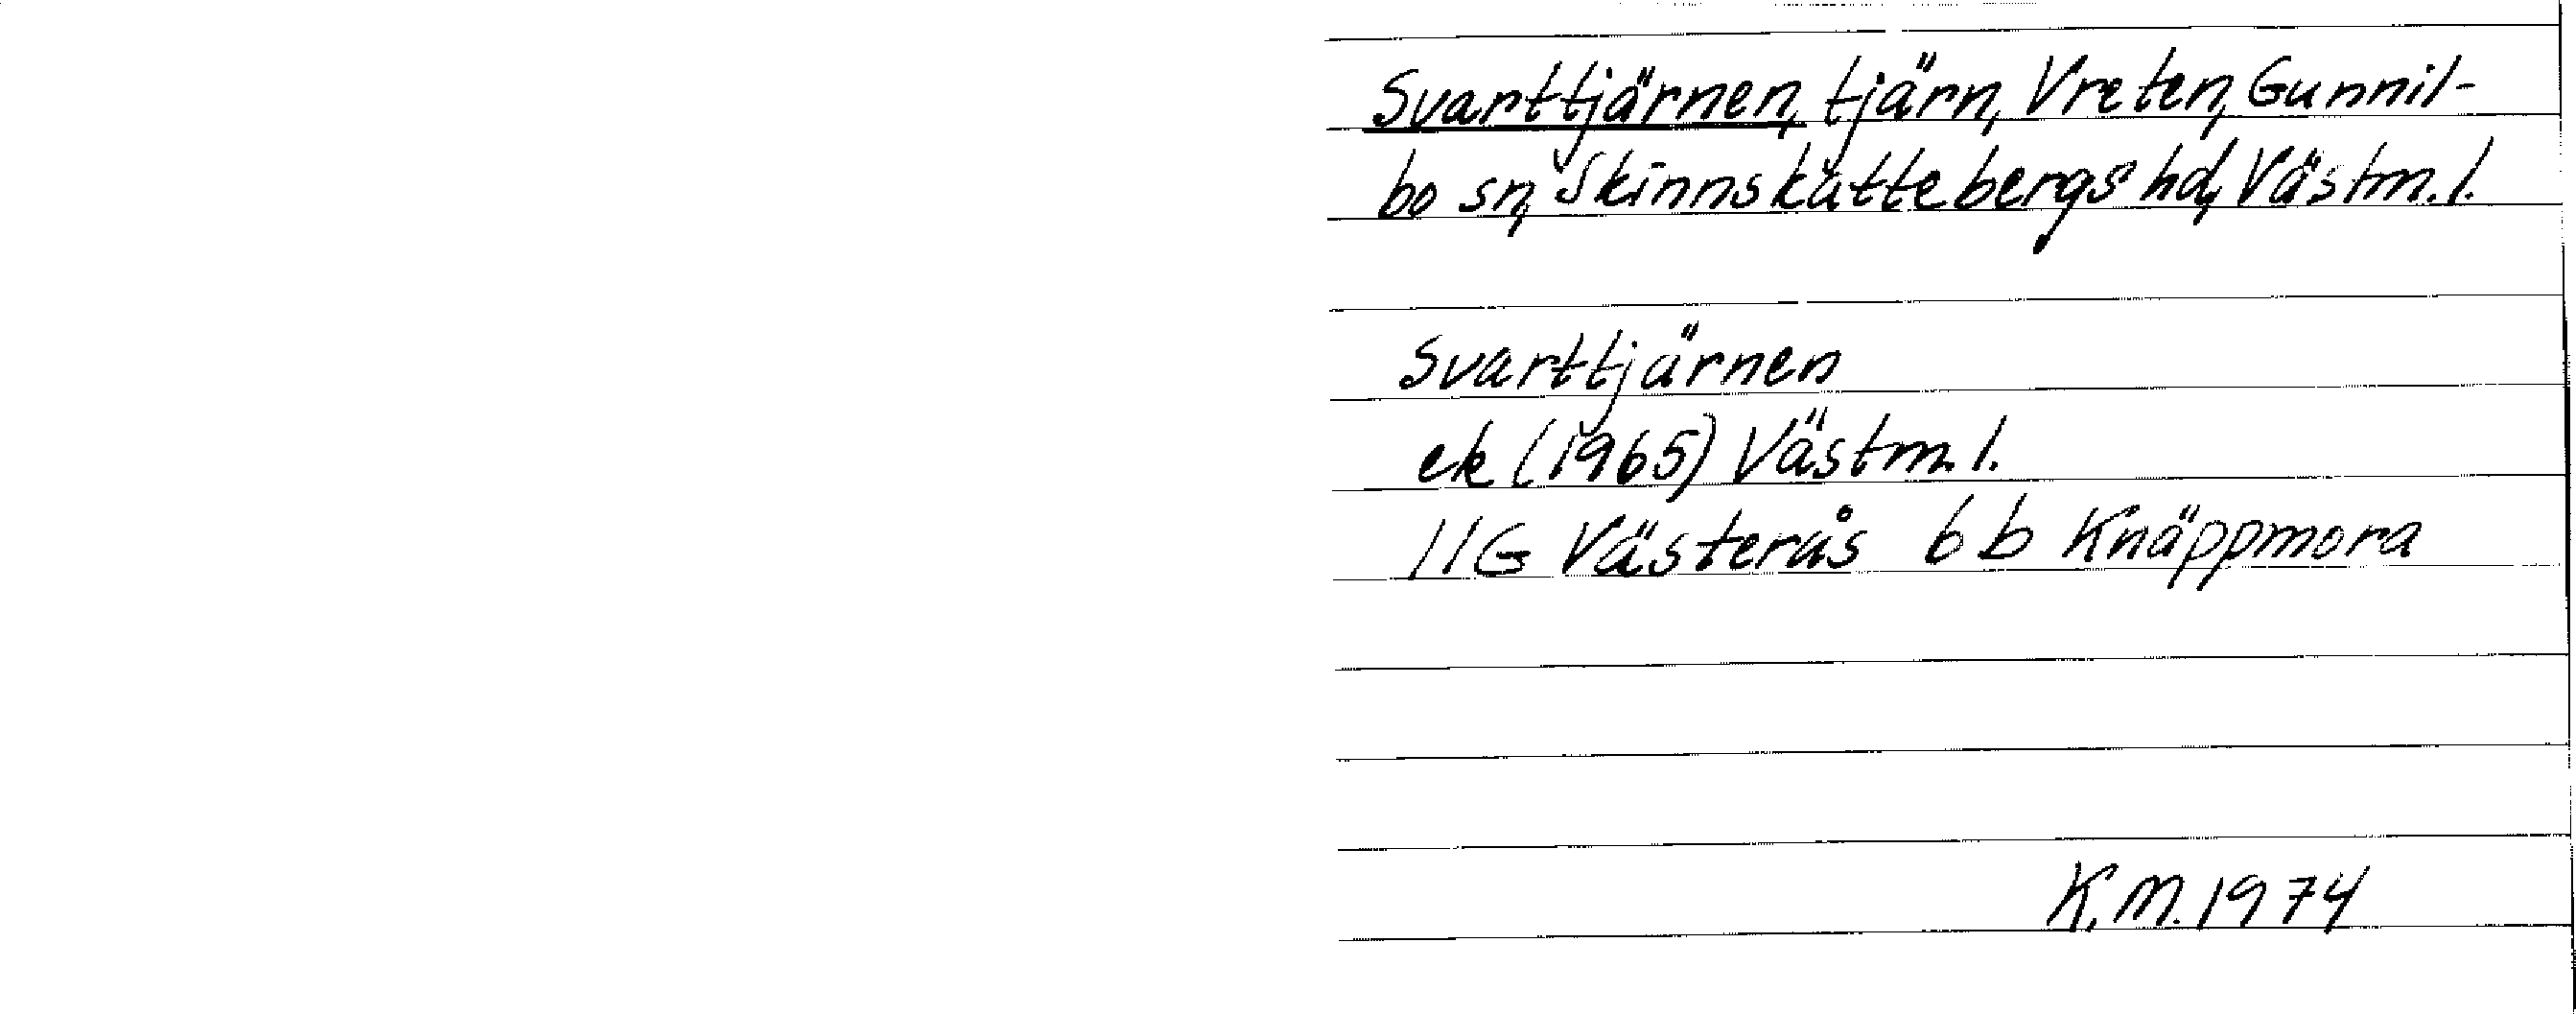 Svarttjärnen, tjärn, Vreten, Gunnil-
bo sn, Skinnskattebergs hd, Västm. l.
Svarttjärnen
ek (1965) Västm. l.
11G Västerås 6b Knäppmora
K.M. 1974